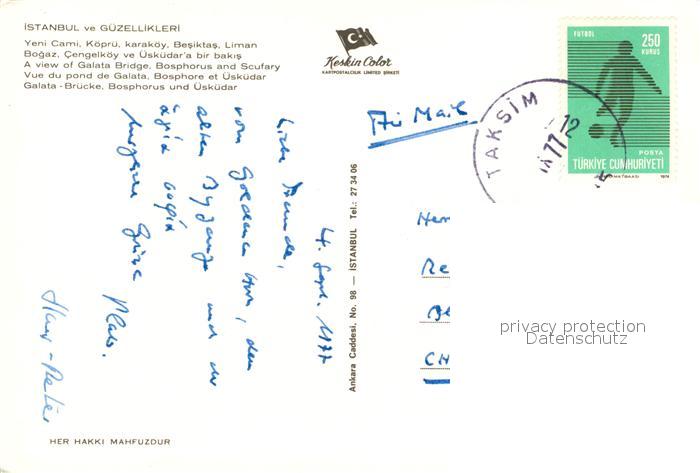 İSTANBUL ve GÜZELLİKLERİ
Yeni Cami, Köprü, karaköy, Beşiktaş, Liman
Boğaz, Çengelköy ve Üsküdar'a bir bakış
A view of Galata Bridge, Bosphorus and Scufary
Vue du pond de Galata, Bosphore et Üsküdar
Galata-Brücke, Bosphorus und Üsküdar
Keskin Color
KARTPOSTALCILIK LİMİTED ŞİRKETİ
FUTBOL
250
KURUŞ
POSTA
TÜRKİYE CUMHURİYETİ
TAKSİM
Air Mail
4. Sept. 1977
Liebe Freunde,
vom Goldenen Horn, dem
alten Byzanz und der
Ägäis
Grüsse
Hans-Peter
Ankara Caddesi, No. 98 — İSTANBUL Tel.: 27 34 06
Her
Re
CH
privacy protection
Datenschutz
HER HAKKI MAHFUZDUR